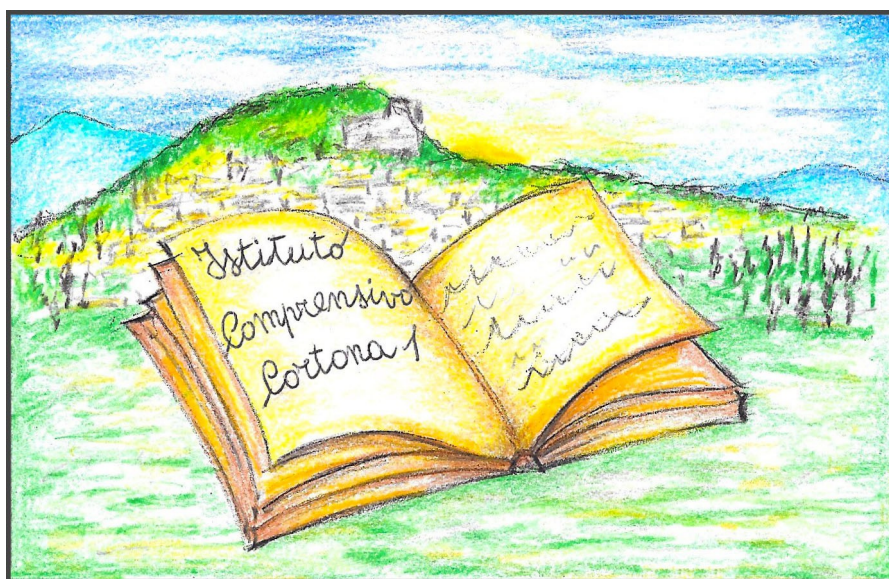 Istituto
Comprensivo
Cortona 1